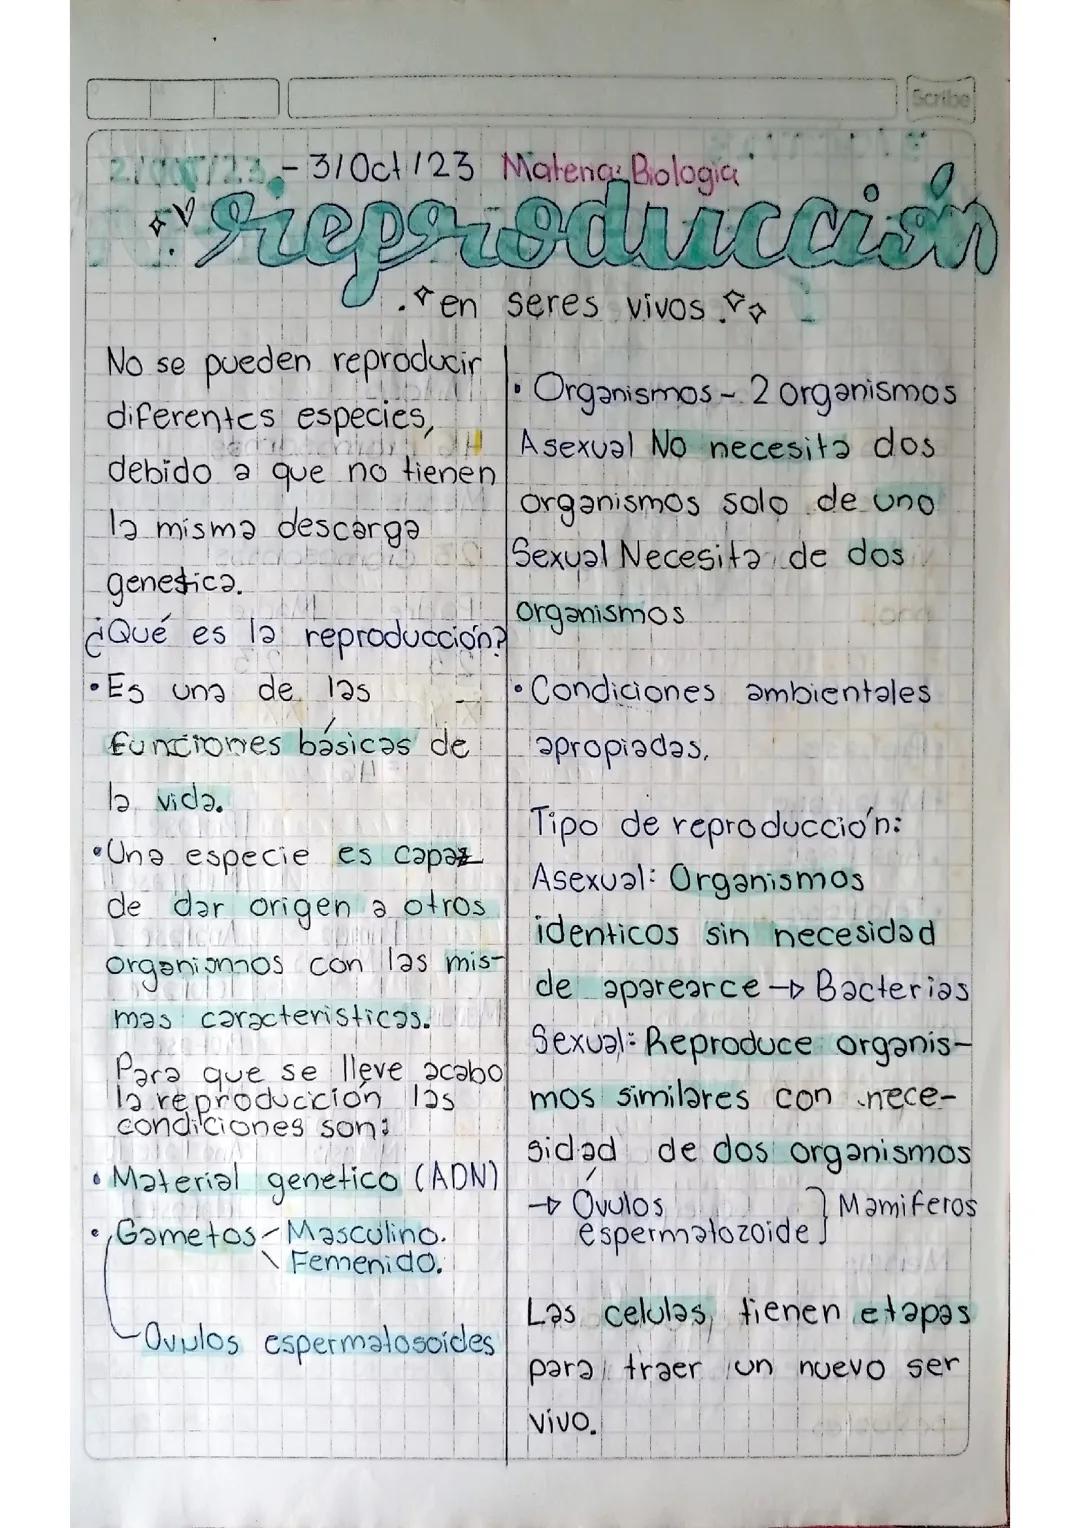 Scribe
- 3/Oct/23 Materia: Biología
reproducción
en seres vivos
No se pueden reproducir
diferentes especies,
debido a que no tienen
la misma descarga
genetica.
¿Qué es la reproducción?
• Es una de las
funciones básicas de
la vida.
• Una especie es capaz
de dar origen a otros
organismos con las mis-
mas caracteristicas.
Para que se lleve acabo
la reproducción las
condiciones son:
• Material genetico (ADN)
• Gametos - Masculino.
\ Femenido.
Ovulos espermatosoides
• Organismos - 2 organismos
Asexual No necesita dos
organismos solo de uno
Sexual Necesita de dos
organismos
• Condiciones ambientales
apropiadas.
Tipo de reproducción:
Asexual: Organismos
identicos sin necesidad
de aparearce → Bacterias
Sexual: Reproduce organis-
mos similares con nece-
sidad de dos organismos
→ Óvulos
espermatozoide } Mamiferos
Las celulas, tienen etapas
para traer un nuevo ser
vivo.